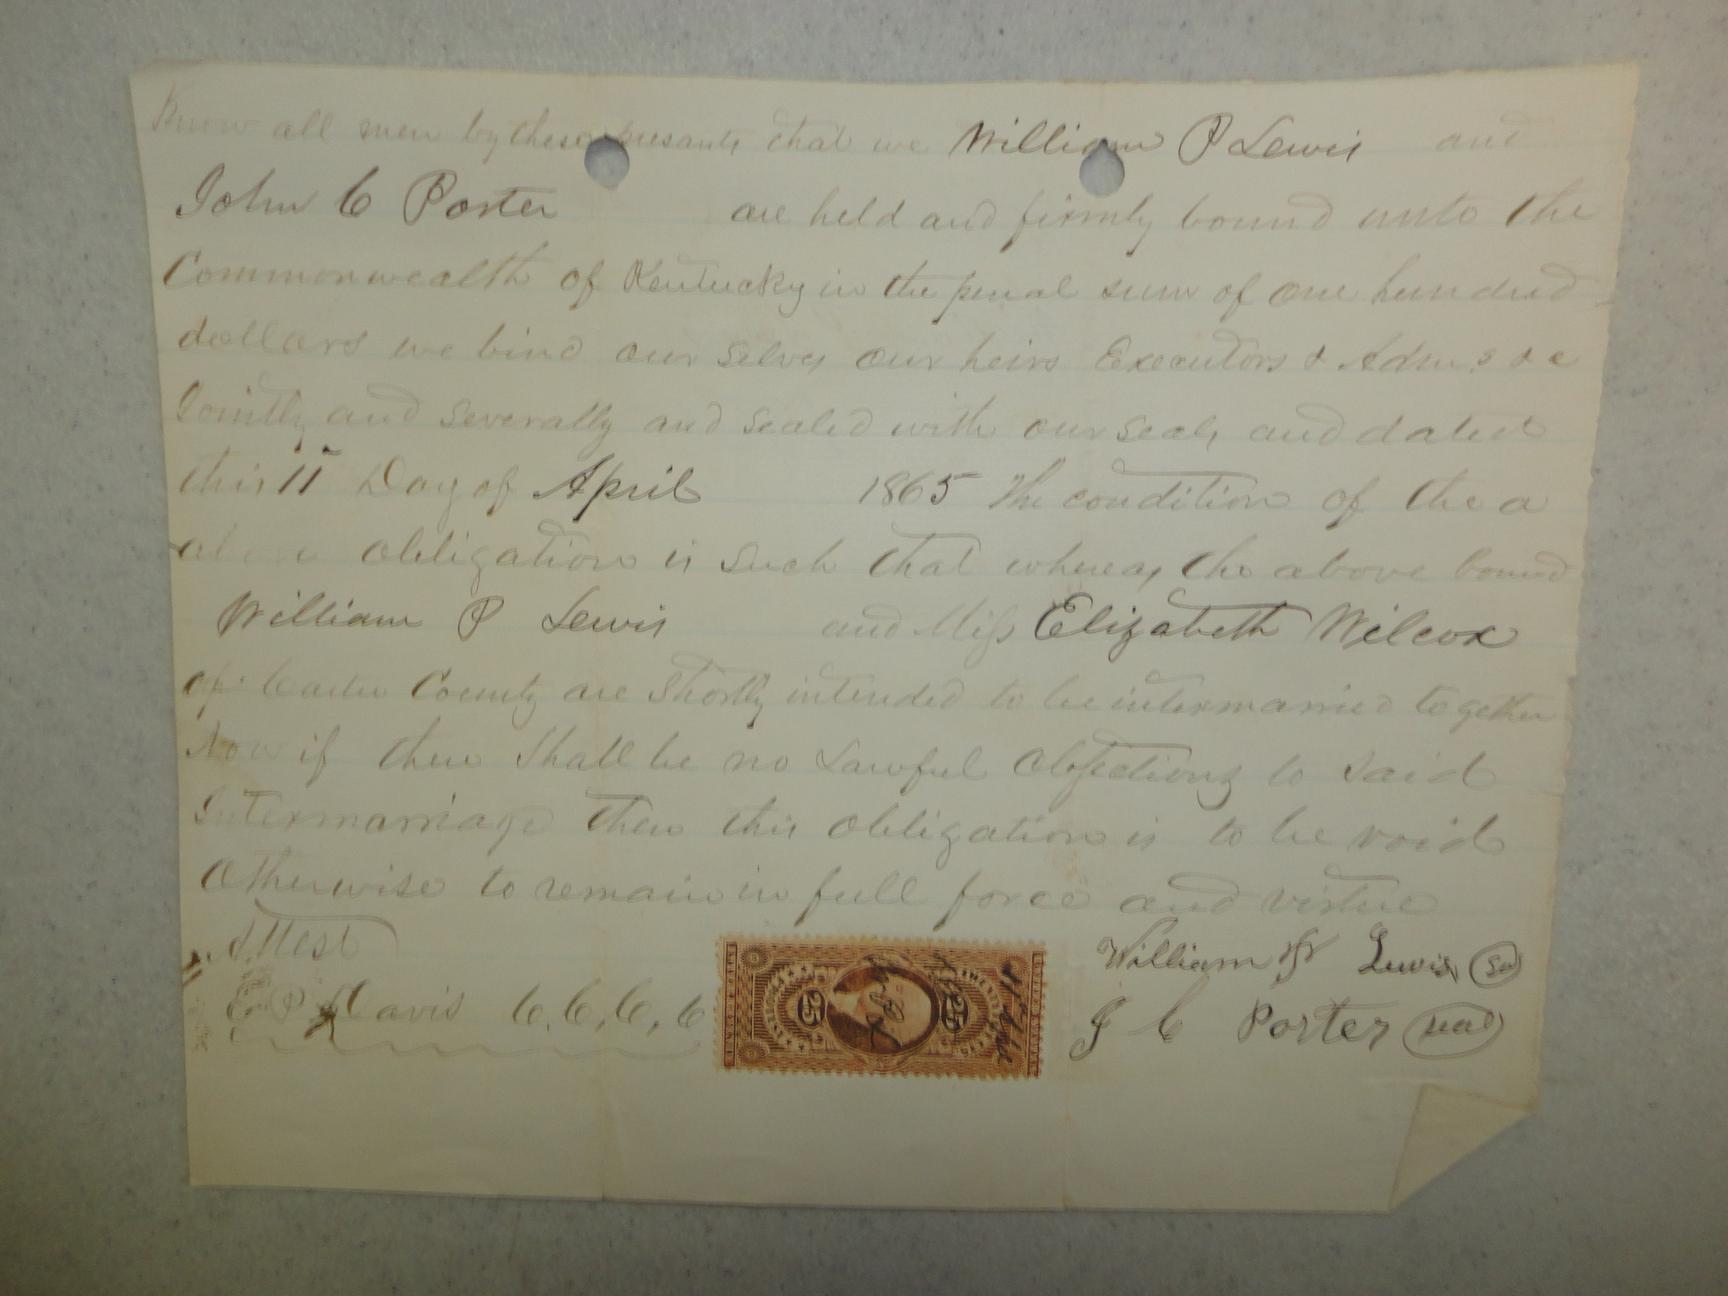 Know all men by these presants that we William P Lewis and
John C Porter are held and firmly bound unto the
Commonwealth of Kentucky in the penal sum of one hundred
dollars we bind our selves our heirs Executors & Adm.s & c
Jointly and severally and sealed with our seals and dated
this 11 Day of April 1865 The condition of the a
above obligation is such that whereas the above bound
William P Lewis and Miss Elizabeth Wilcox
of Carter County are Shortly intended to be intermarried together
Now if there Shall be no Lawful Objections to Said
Intermarriage then this obligation is to be void
Otherwise to remain in full force and virtue
Attest William P Lewis Seal
E P Davis C.C.C.C J C Porter seal
25 25